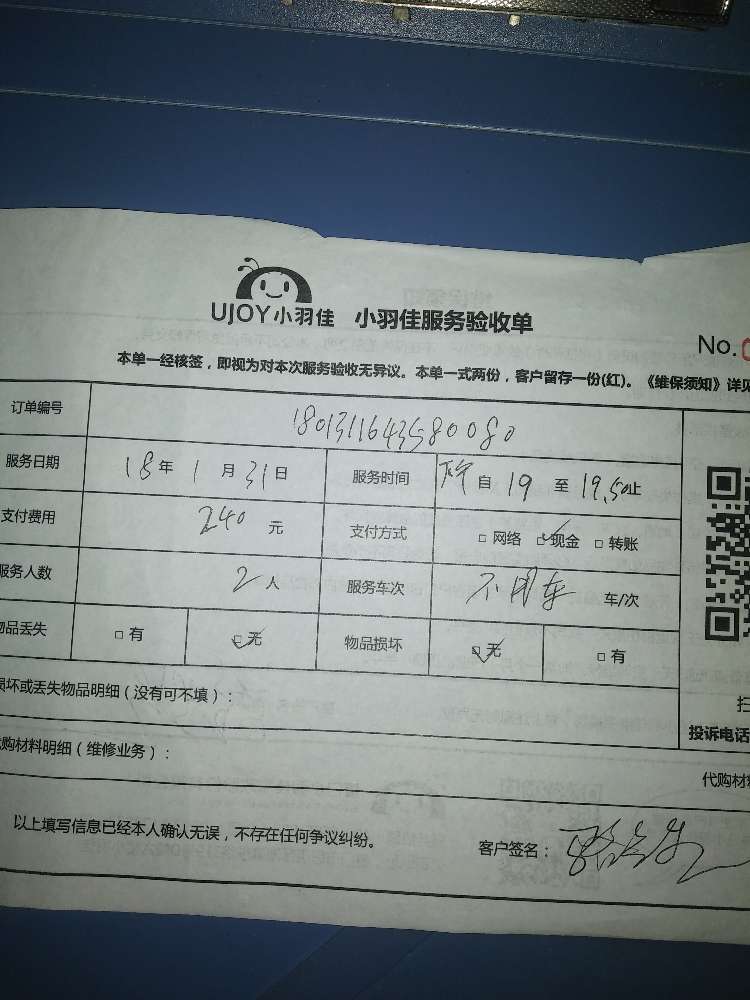 UJOY小羽佳 小羽佳服务验收单
No.
本单一经核签，即视为对本次服务验收无异议。本单一式两份，客户留存一份(红)。《维保须知》详见
订单编号 1801311643580080
服务日期 18年1月31日 服务时间 自19至19.50止
支付费用 240元 支付方式 □网络 ☑现金 □转账
服务人数 2人 服务车次 不用车 车/次
物品丢失 □有 ☑无 物品损坏 ☑无 □有
损坏或丢失物品明细（没有可不填）：
扫
投诉电话
代购材料明细（维修业务）：
代购材料
以上填写信息已经本人确认无误，不存在任何争议纠纷。 客户签名：